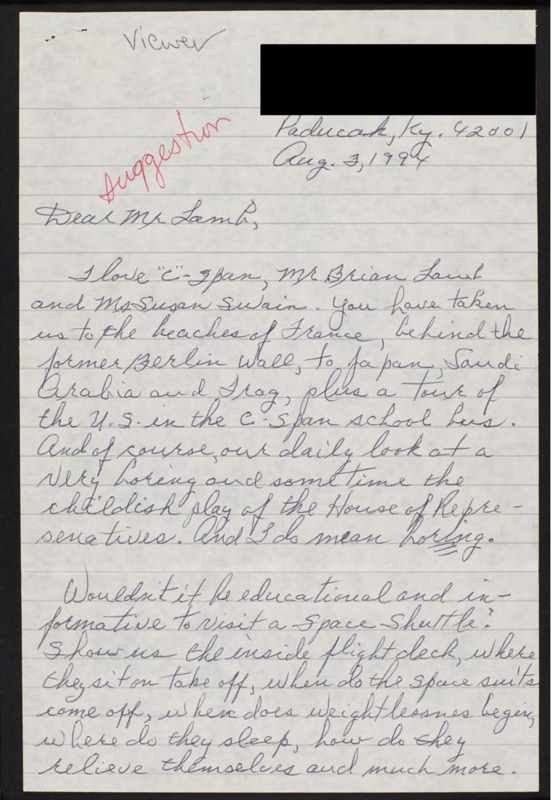 Viewer
Paducah, Ky. 42001
Aug. 3, 1994
Suggestion
Dear Mr Lamb,
I love "C"-Span, Mr Brian Lamb
and Ms Susan Swain. You have taken
us to the beaches of France, behind the
former Berlin Wall, to Japan, Saudi
Arabia and Iraq, plus a Tour of
the U.S. in the C-Span school bus.
And of course, our daily look at a
very boring and sometime the
childish play of the House of Repre-
senatives. And I do mean boring.
Wouldn't it be educational and in-
formative to visit a Space Shuttle?
Show us the inside flight deck, where
they sit on take off, when do the space suits
come off, when does weightlessnes begin,
where do they sleep, how do they
relieve themselves and much more.